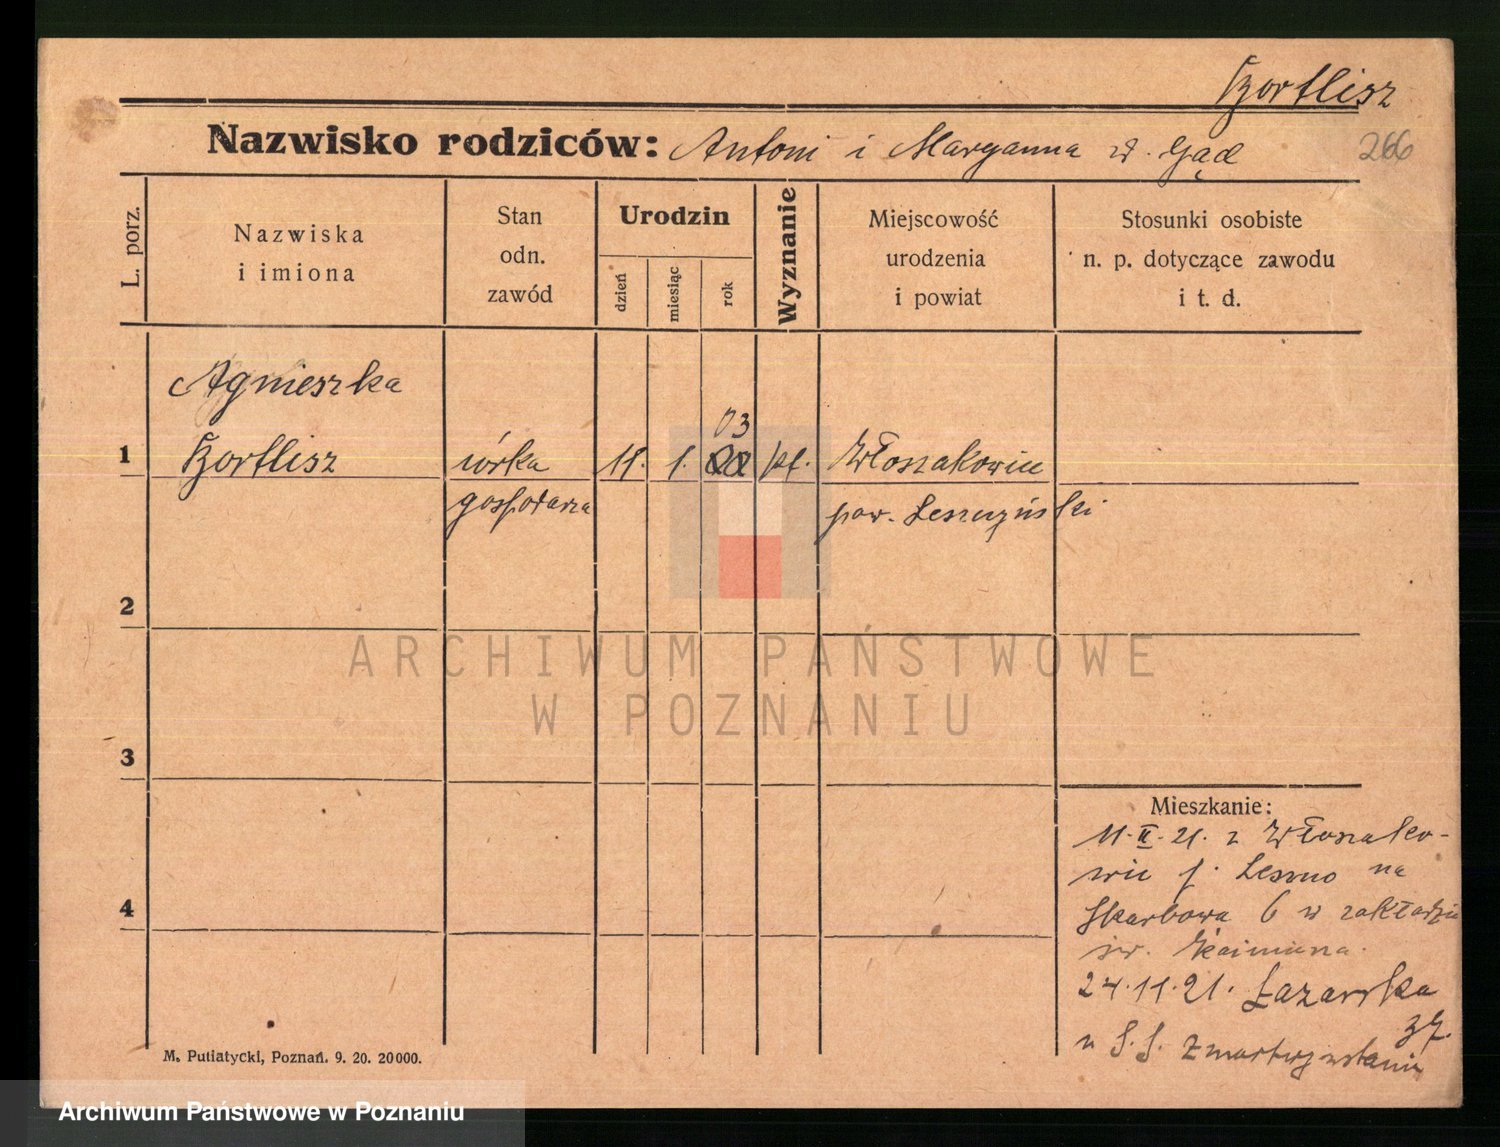 Kortlisz
Nazwisko rodziców: Antoni i Maryanna z. Gąd
266
L. porz.
Nazwiska
i imiona
Stan
odn.
zawód
Urodzin
dzień
miesiąc
rok
Wyznanie
Miejscowość
urodzenia
i powiat
Stosunki osobiste
n. p. dotyczące zawodu
i t. d.
Agnieszka
03
1 Kortlisz córka 11. 1. kt. Włoszakowice
gospodarza pow. Leszczyński
2
3
4
Mieszkanie:
11.II.21. z Włoszako-
wic p. Leszno na
Skarbowa 6 w zakładzie
św.
24.11.21. Łazarska
37.
u S.S. Zmartwychwstania
M. Putiatycki, Poznań. 9. 20. 20000.
ARCHIWUM PAŃSTWOWE
W POZNANIU
Archiwum Państwowe w Poznaniu